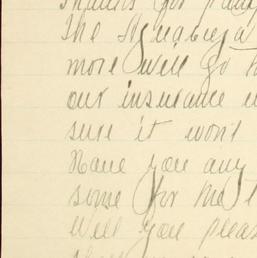 Thanks for
the
more will go
our insurance
sure it won't
have you any
some for me
Will you please